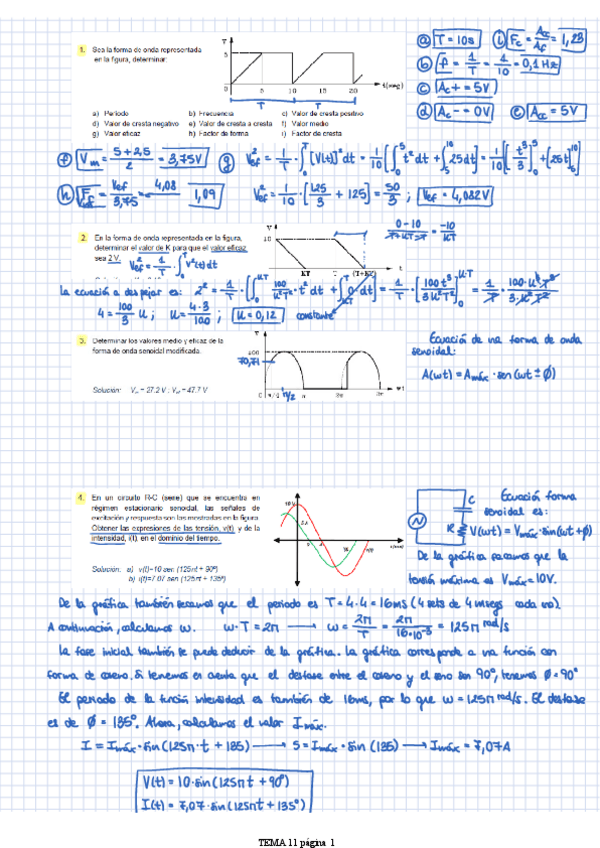 1. Sea la forma de onda representada
en la figura, determinar:
a) Periodo b) Frecuencia c) Valor de cresta positivo
d) Valor de cresta negativo e) Valor de cresta a cresta f) Valor medio
g) Valor eficaz h) Factor de forma i) Factor de cresta
V
5
0 5 10 15 20 t(mseg)
T T
ⓐ T = 10s ⓘ Fc = Acc/Af = 1,23
ⓑ f = 1/T = 1/10 = 0,1 Hz
ⓒ Ac+ = 5V
ⓓ Ac- = 0V ⓔ Acc = 5V
ⓕ Vm = (5+2,5)/2 = 3,75V ⓖ Vef² = 1/T · ∫₀ᵀ [V(t)]² dt = 1/10 [∫₀⁵ t² dt + ∫₅¹⁰ 25dt] = 1/10 [t³/3]₀⁵ + [25t]₅¹⁰
ⓗ Ff = Vef/3,75 = 4,08 = 1,09 Vef² = 1/10 · [125/3 + 125] = 50/3 ; Vef = 4,082V
2. En la forma de onda representada en la figura,
determinar el valor de K para que el valor eficaz
sea 2 V. Vef² = 1/T · ∫₀ᵀ v²(t) dt
V
10
KT T (T+KT) t
La ecuación a despejar es: 2² = 1/T
4 = 100/3 K ; K = 4·3/100 ; K = 0,12 constante
3. Determinar los valores medio y eficaz de la
forma de onda senoidal modificada.
Solución: Vm = 27.2 V ; Vef = 47.7 V
70,71
Ecuación de una forma de onda
senoidal:
A(wt) = Amáx · sen(wt ± ϕ)
4. En un circuito R-C (serie) que se encuentra en
régimen estacionario senoidal, las señales de
excitación y respuesta son las mostradas en la figura.
Obtener las expresiones de las tensión, v(t) y de la
intensidad, i(t), en el dominio del tiempo.
Solución: a) v(t)=10 sen (125πt + 90º)
b) i(t)=7.07 sen (125πt + 135º)
10 V
5 A
C
R
Ecuación forma
senoidal es:
V(wt) = Vmáx · sin(wt + ϕ)
De la gráfica sacamos que la
tensión máxima es Vmáx = 10V.
De la gráfica también sacamos que el periodo es T = 4·4 = 16ms (4 sets de 4 msegs cada uno).
A continuación, calculamos w. w·T = 2π → w = 2π/T = 2π/16·10⁻³ = 125π rad/s
La fase inicial también se puede deducir de la gráfica. La gráfica corresponde a una función con
forma de coseno. Si tenemos en cuenta que el desfase entre el coseno y el seno son 90º, tenemos ϕ = 90º
El periodo de la función intensidad es también de 16ms, por lo que w = 125π rad/s. El desfase
es de ϕ = 135º. Ahora, calculamos el valor Imáx.
I = Imáx · sin(125π·t + 135) → 5 = Imáx · sin(135) → Imáx = 7,07A
V(t) = 10·sin(125πt + 90º)
I(t) = 7,07·sin(125πt + 135º)
TEMA 11 página 1